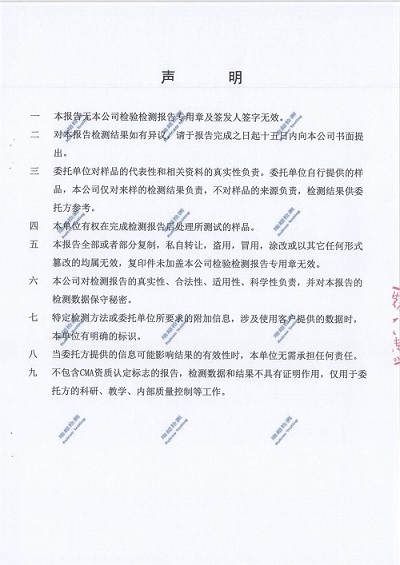 声 明
一 本报告无本公司检验检测报告专用章及签发人签字无效。
二 对本报告检测结果如有异议，请于报告完成之日起十五日内向本公司书面提
出。
三 委托单位对样品的代表性和相关资料的真实性负责。委托单位自行提供的样
品，本公司仅对来样的检测结果负责，不对样品的来源负责，检测结果供委
托方参考。
四 本单位有权在完成检测报告后处理所测试的样品。
五 本报告全部或者部分复制，私自转让，盗用，冒用，涂改或以其它任何形式
篡改的均属无效，复印件未加盖本公司检验检测报告专用章无效。
六 本公司对检测报告的真实性、合法性、适用性、科学性负责，并对本报告的
检测数据保守秘密。
七 特定检测方法或委托单位所要求的附加信息，涉及使用客户提供的数据时，
本单位有明确的标识。
八 当委托方提供的信息可能影响结果的有效性时，本单位无需承担任何责任。
九 不包含CMA资质认定标志的报告，检测数据和结果不具有证明作用，仅用于委
托方的科研、教学、内部质量控制等工作。